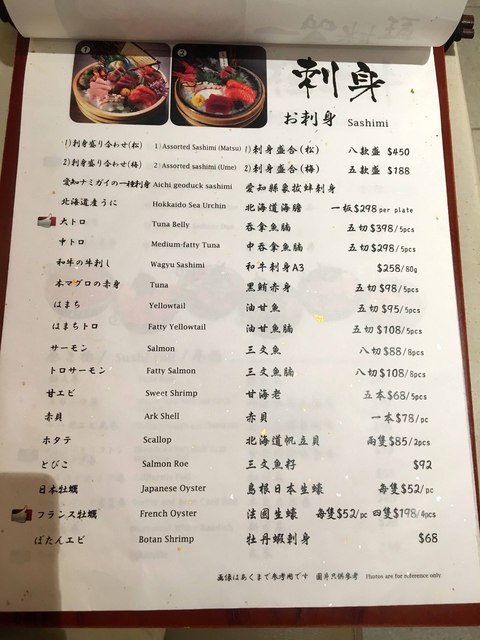 1
2
刺身
お刺身 Sashimi
1)刺身盛り合わせ(松) 1) Assorted Sashimi (Matsu) 1)刺身盛合(松) 八款盛 $450
2)刺身盛り合わせ(梅) 2) Assorted Sashimi (Ume) 2)刺身盛合(梅) 五款盛 $188
愛知ナミガイの一種刺身 Aichi geoduck sashimi 愛知縣象拔蚌刺身
北海道産うに Hokkaido Sea Urchin 北海道海膽 一板$298 per plate
大トロ Tuna Belly 吞拿魚腩 五切$398/5pcs
中トロ Medium-fatty Tuna 中吞拿魚腩 五切$298/5pcs
和牛の牛刺し Wagyu Sashimi 和牛刺身A3 $258/80g
本マグロの赤身 Tuna 黑鮪赤身 五切$98/5pcs
はまち Yellowtail 油甘魚 五切$95/5pcs
はまちトロ Fatty Yellowtail 油甘魚腩 五切$108/5pcs
サーモン Salmon 三文魚 八切$88/8pcs
トロサーモン Fatty Salmon 三文魚腩 八切$108/8pcs
甘エビ Sweet Shrimp 甘海老 五本$68/5pcs
赤貝 Ark Shell 赤貝 一本$78/pc
ホタテ Scallop 北海道帆立貝 兩隻$85/2pcs
とびこ Salmon Roe 三文魚籽 $92
日本牡蠣 Japanese Oyster 島根日本生蠔 每隻$52/pc
フランス牡蠣 French Oyster 法國生蠔 每隻$52/pc 四隻$198/4pcs
ぼたんエビ Botan Shrimp 牡丹蝦刺身 $68
画像はあくまで参考用です 圖片只供參考 Photos are for reference only